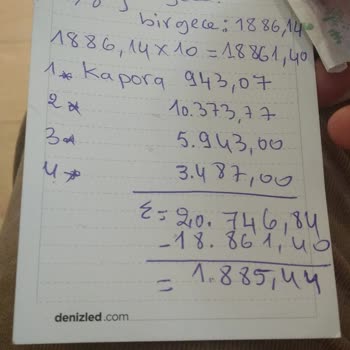 birgece: 1886,14
1886,14 x 10 = 18861,40
1* Kapora 943,07
2* 10.373,77
3* 5.943,00
4* 3.487,00
Σ= 20.746,84
-18.861,40
= 1.885,44
denizled.com